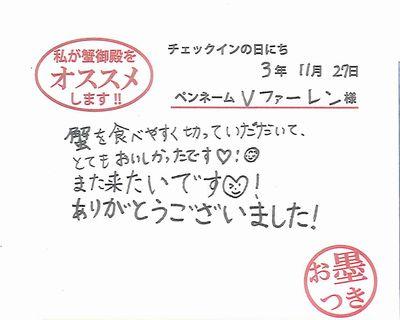 私が蟹御殿を
オススメ
します!!
チェックインの日にち
3年 11月 27日
ペンネーム Vファーレン様
蟹を食べやすく切っていただいて、
とてもおいしかったです♡!☺
また来たいです♡!
ありがとうございました!
お墨
つき